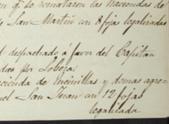 se remataron las Haciendas de
San Martin en 8 fojas legalizadas
despachado a favor del Capitan
por Loboza
cienda de minillas y demas agre-
San Juan en 12 fojas
legalizada